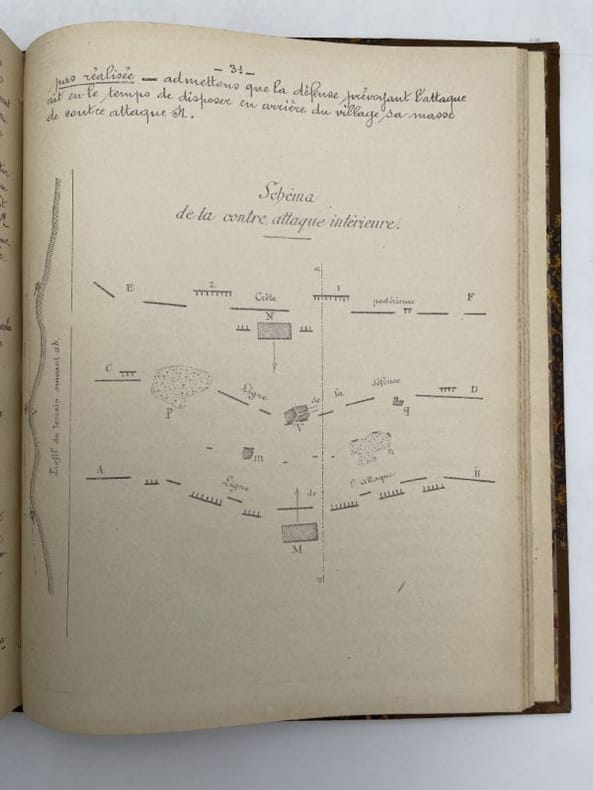 — 31 —
pas réalisée — admettons que la défense prévoyant l'attaque
ait eu le temps de disposer en arrière du village, sa masse
de contre attaque N.
Schéma
de la contre attaque intérieure.
E 2 1 F
Crête postérieure
N
C D
Ligne de la défense
P V q
m n
A B
Ligne de l'attaque
M
a
b
Profil du terrain suivant ab.
V